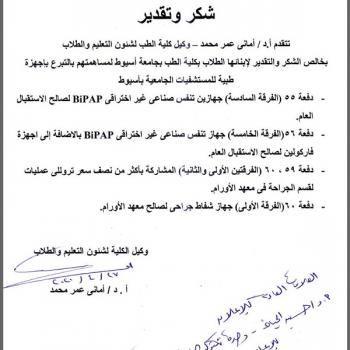 شكر وتقدير
تتقدم أ.د/ أمانى عمر محمد – وكيل كلية الطب لشئون التعليم والطلاب
بخالص الشكر والتقدير لإبنائها الطلاب بكلية الطب بجامعة أسيوط لمساهمتهم بالتبرع بإجهزة
طبية للمستشفيات الجامعية بأسيوط
- دفعة ٥٥ (الفرقة السادسة) جهازين تنفس صناعى غير اختراقى BiPAP لصالح الاستقبال
العام.
- دفعة ٥٦ (الفرقة الخامسة) جهاز تنفس صناعى غير اختراقى BiPAP بالاضافة إلى اجهزة
فاركولين لصالح الاستقبال العام.
- دفعة ٥٩ ، ٦٠ (الفرقتين الأولى والثانية) المشاركة بأكثر من نصف سعر تروللى عمليات
لقسم الجراحة فى معهد الأورام.
- دفعة ٦٠ (الفرقة الأولى) جهاز شفاط جراحى لصالح معهد الأورام.
وكيل الكلية لشئون التعليم والطلاب
أ.د / أمانى عمر محمد